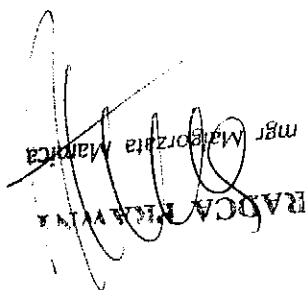 RADCA PRAWNY
mgr Małgorzata Mamica